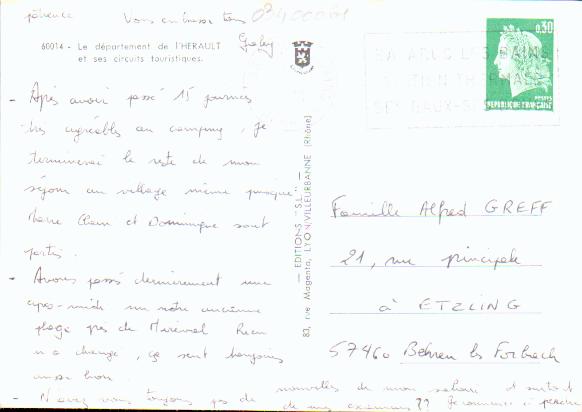 patience Vous embrasse tous
60014 - Le département de l'HERAULT
et ses circuits touristiques.
- Après avoir passé 15 journées
très agréables au camping, je
terminerai le reste de mon
séjour au village même puisque
Pierre Clain et Dominique sont
partis.
- Avons passé dernièrement une
après-midi sur notre ancienne
plage près de Mireval Rien
n'a changé, ça sent toujours
aussi bon.
- N'avez vous toujours pas de nouvelles de mon salaire et surtout
de mes examens ?? Je commence à perdre
— EDITIONS "S.L." —
83, rue Magenta, LYON-VILLEURBANNE (Rhône)
0,30
POSTES
REPUBLIQUE FRANÇAISE
BALARUC LES BAINS
STATION THERMALE
SES EAUX-S
Famille Alfred GREFF
21, rue principale
à ETZLING
57460 Behren les Forbach